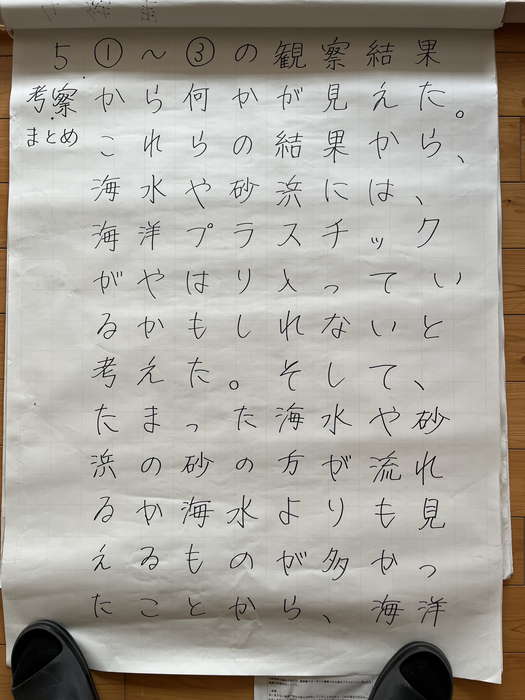 5 ①～③の観察結果
考察 から何かが見えた。
まとめ これらの結果から、
海水や砂浜には、
海洋プラスチック
がやはり入ってい
るかもしれないと
考えた。そして、
たまった海水や砂
浜の砂の方が流れ
るか海水よりも見
えるものが多かっ
たことから、海洋